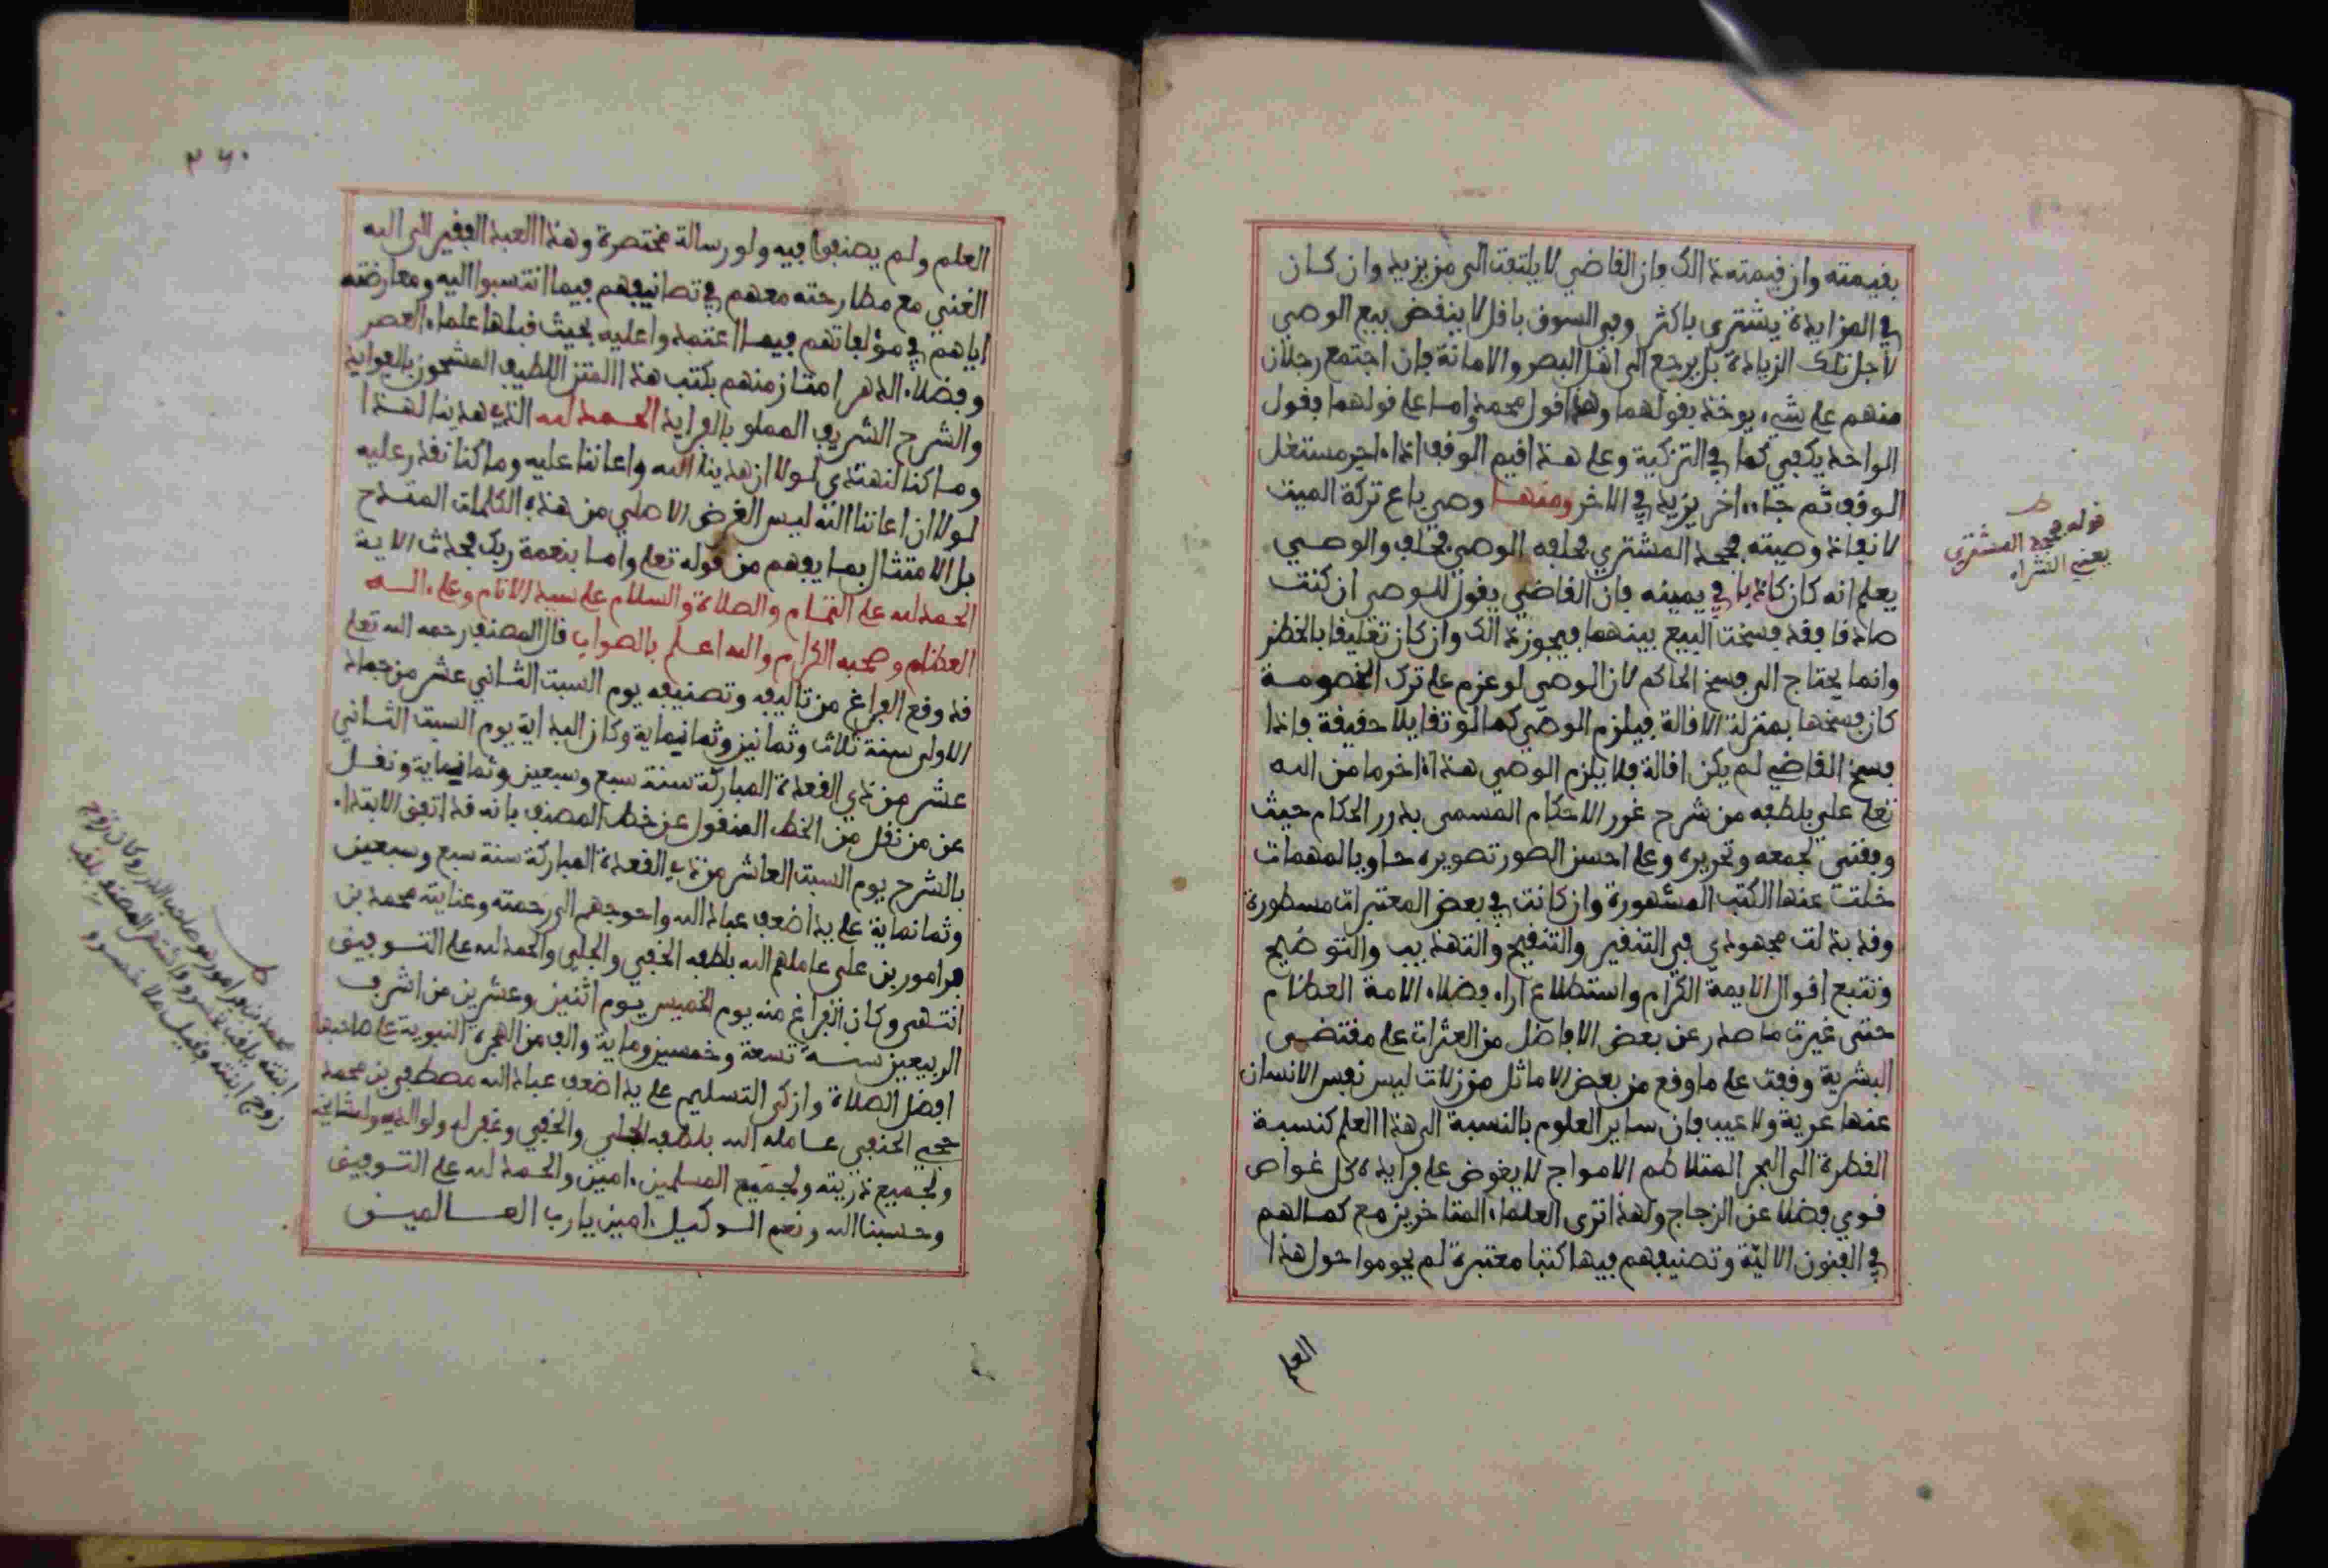 بقيمته وان قيمته ذالك فان القاضي لا يلتفت الى من يزيد وان كان
في المزايدة يشترى باكثر وفي السوق باقل لا ينقض بيع الوصي
لاجل تلك الزيادة بل يرجع الى اهل البصر والامانة فان اجتمع رجلان
منهم على شيء يوخذ بقولهما وهذا قول محمد واما على قولهما فقول
الواحد يكفي كما في التزكية وعلى هذا قيم الوقف اذا اجر مستغل
الوقف ثم جاء اخر يزيد في الاخر ومنها وصي باع تركة الميت
لانفاذ وصيته فجحد المشتري فحلفه الوصي فحلف والوصي
يعلم انه كان كاذبا في يمينه فان القاضي يقول للوصي ان كنت
صادقا فقد فسخت البيع بينهما فيجوز ذالك وان كان تعليقا بالخطر
وانما يحتاج الى فسخ الحاكم لان الوصي لو عزم على ترك الخصومة
كان فسخها بمنزلة الاقالة فيلزم الوصي كما لو تقايلا حقيقة فاذا
فسخ القاضي لم يكن اقالة فلا يلزم الوصي هذا اخر ما من الله
تعلى علي بلطفه من شرح غور الاحكام المسمى بدرر الحكام حيث
وفقني لجمعه وتحريره وعلى احسن الصور تصويره حاويا لمهمات
خلت عنها الكتب المشهورة وان كانت في بعض المعتبرات مسطورة
وقد بذلت مجهودي في التنقير والتنقيح والتهذيب والتوضيح
وتتبع اقوال الايمة الكرام واستطلاع آراء فضلاء الامة العظام
حتى غيرت ما صدر عن بعض الافاضل من العثرات على مقتضى
البشرية وقفت على ما وقع من بعض الاماثل من زلات ليس نفس الانسان
عنها عرية ولا عيب فان ساير العلوم بالنسبة الى هذا العلم كنسبة
القطرة الى البحر المتلاطم الامواج لا يغوض على فرايده كل غواص
قوي فضلا عن الزجاج ولهذا ترى العلماء المتاخرين مع كمالهم
في الفنون الالية وتصنيفهم فيها كتبا معتبرة لم يحوموا حول هذا
العلم
قوله فجحد المشتري
يعني الشراء
٢٦٠
العلم ولم يصنفوا فيه ولو رسالة مختصرة وهذا العبد الفقير الى الله
الغني مع مطارحته معهم في تصانيفهم فيما انتسبوا اليه ومعارضته
اياهم في مؤلفاتهم فيما اعتمدوا عليه بحيث قبلها علماء العصر
وفضلاء الدهر امتاز منهم بكتب هذا المتن اللطيف المشحون بالفوايد
والشرح الشريف المملو بالفرايد الحمد لله الذي هدينا لهذا
وما كنا لنهتدي لولا ان هدينا الله واعاننا عليه وما كنا نقدر عليه
لولا ان اعاننا الله ليس الغرض الاصلي من هذه الكلمات المتدح
بل الامتثال بما يفهم من قوله تعلى واما بنعمة ربك فحدث الاية
الحمد لله على التمام والصلاة والسلام على سيد الانام وعلى اله
العظام وصحبه الكرام والله اعلم بالصواب قال المصنف رحمه الله تعلى
قد وقع الفراغ من تاليفه وتصنيفه يوم السبت الثاني عشر من جماد
الاولى سنة ثلاث وثمانين وثمانيماية وكان البداية يوم السبت الثاني
عشر من ذي القعدة المباركة سنة سبع وسبعين وثمانيماية ونقل
عن من نقل من الخط المنقول عن خط المصنف بانه قد اتفق الابتداء
بالشرح يوم السبت العاشر من ذي القعدة المباركة سنة سبع وسبعين
وثمانماية على يد اضعف عباد الله واحوجهم الى رحمته وعنايته محمد بن
فرامور بن علي عاملهم الله بلطفه الخفي والجلي والحمد لله على التوفيق
انتهى وكان الفراغ منه يوم الخميس يوم اثنين وعشرين من اشرف
الربيعين سنة تسعة وخمسين وماية والف من الهجرة النبوية على صاحبها
افضل الصلاة وازكى التسليم على يد اضعف عباد الله مصطفى بن محمد
حجي الحنفي عامله الله بلطفه الجلي والخفي وغفر له ولوالديه ولمشايخه
ولجميع ذريته ولجميع المسلمين امين والحمد لله على التوفيق
وحسبنا الله ونعم الوكيل امين يارب العالمين
محمد بن فرامور هو صاحب الدرر وكان زوج
ابنته يلقب خسرو واشتهر المصنف بلقب
زوج ابنته وقيل ملا خسرو